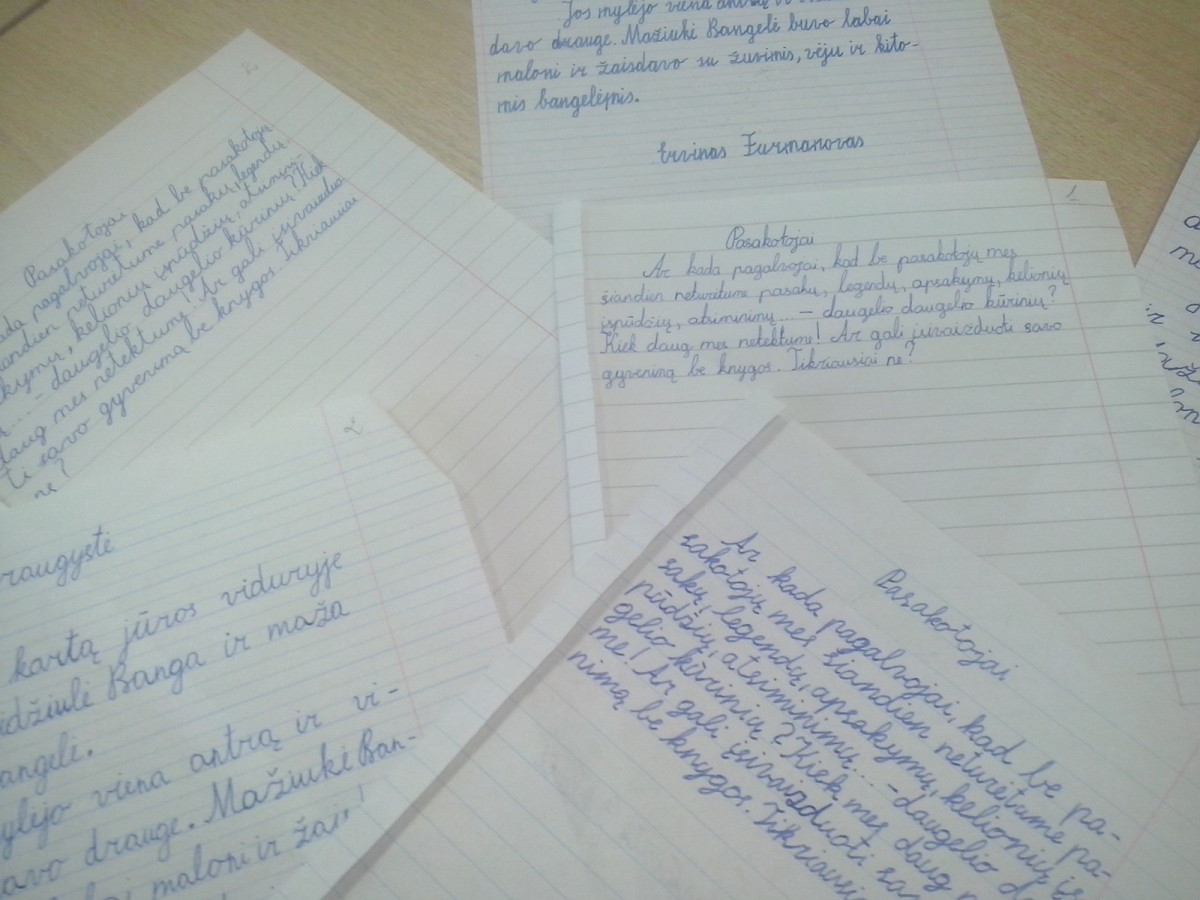 Jos mylėjo viena antrą ir
davo drauge. Mažiukė Bangelė buvo labai
maloni ir žaisdavo su žuvimis, vėju ir kito-
mis bangelėmis.
Ervinas Furmanovas
2
Pasakotojai
kada pagalvojai, kad be pasakotojų
neturėtume pasakų, legendų
kelionių įspūdžių, atsimini-
daugelio daugelio kūrinių? Kiek
daug mes netektume! Ar gali įsivaizduo-
ti savo gyvenimą be knygos. Tikriausiai
ne?
1
Pasakotojai
Ar kada pagalvojai, kad be pasakotojų mes
šiandien neturėtume pasakų, legendų, apsakymų, kelionių
įspūdžių, atsiminimų...– daugelio daugelio kūrinių?
Kiek daug mes netektume! Ar gali įsivaizduoti savo
gyvenimą be knygos. Tikriausiai ne?
2
raugystė
kartą jūros viduryje
idžiulė Banga ir maža
angelė.
ylėjo viena antrą ir vi-
avo drauge. Mažiukė Ban-
maloni ir žai
Pasakotojai
Ar kada pagalvojai, kad be pa-
sakotojų mes šiandien neturėtume pa-
sakų, legendų, apsakymų, kelionių įs-
pūdžių, atsiminimų...-daugelio
gelio kūrinių? Kiek mes daug
me! Ar gali įsivaizduoti
nimą be knygos. Tikriausiai